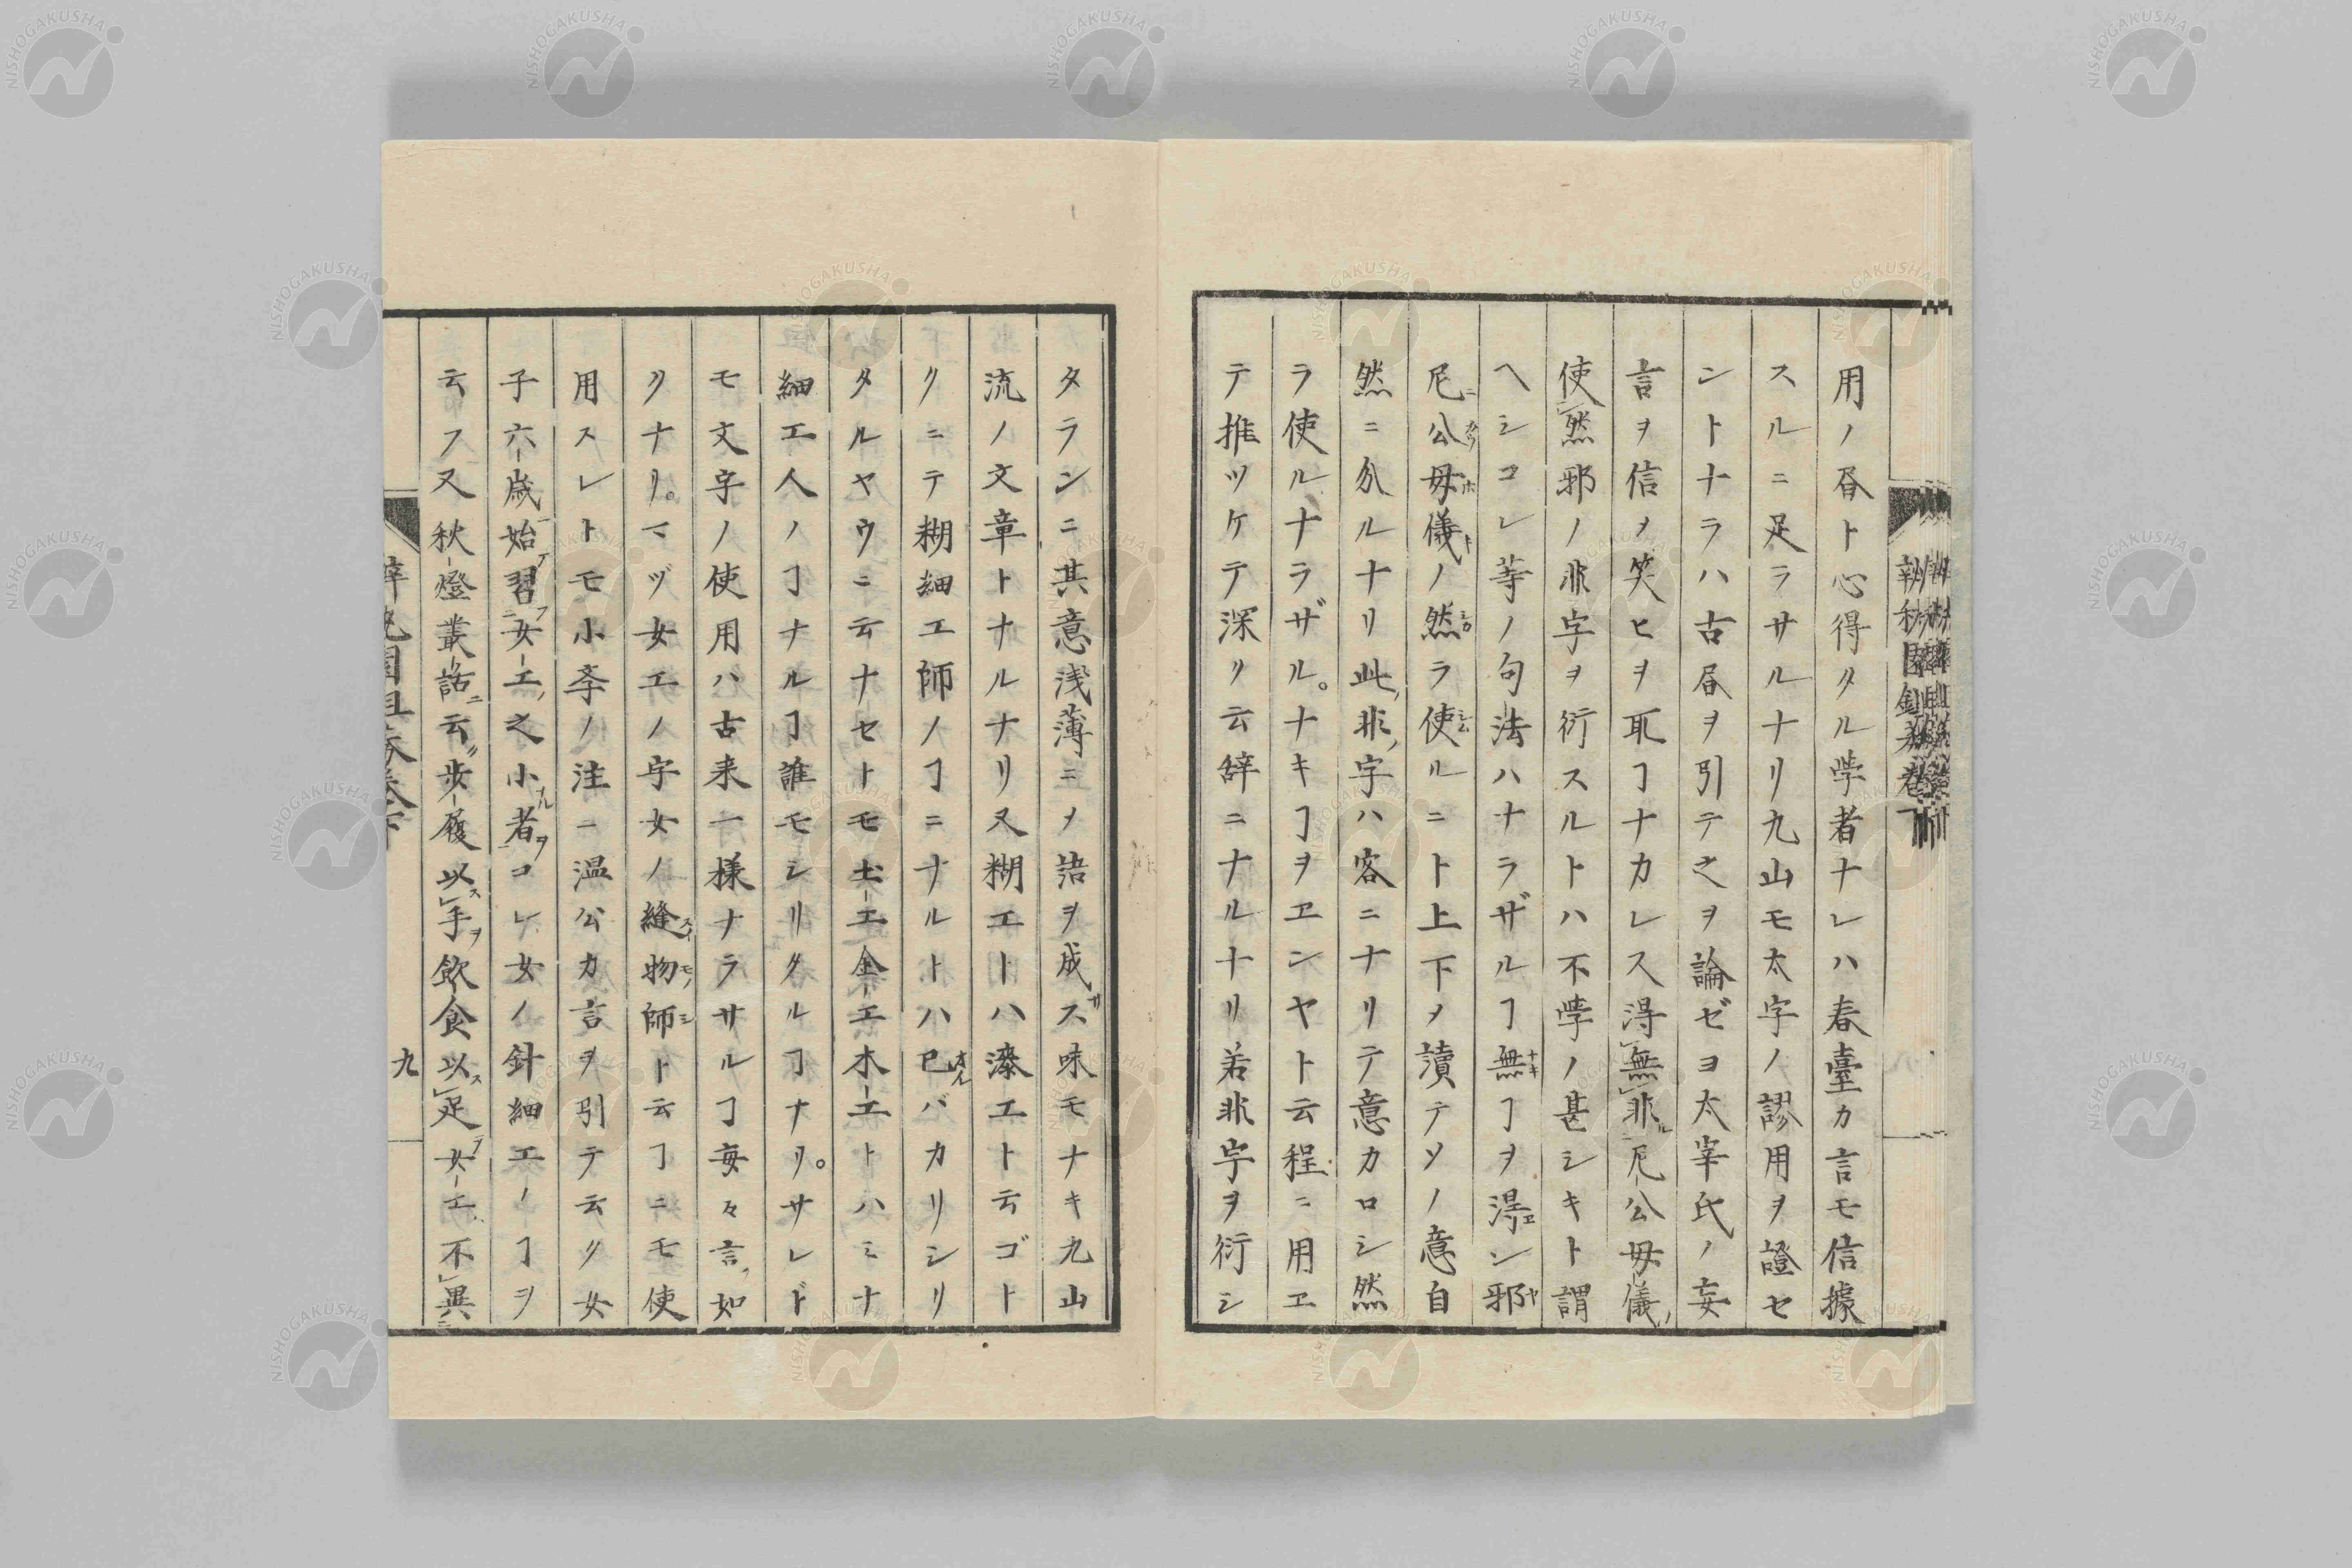 用ノ昏ト心得タル学者ナレハ春臺カ言モ信據
スルニ足ラサルナリ九山モ太字ノ謬用ヲ證セ
ントナラハ古昏ヲ引テ之ヲ論ゼヨ太宰氏ノ妄
言ヲ信メ笑ヒヲ取ヿナカレス得無非尼公母儀
使然邪ノ非字ヲ衍スルトハ不学ノ甚シキト謂
ヘシコレ等ノ句法ハナラザルヿ無ヿヲ得ン邪
尼公母儀ノ然ラ使ルニト上下メ讀テソノ意自
然ニ分ルナリ此非字ハ客ニナリテ意カロシ然
ラ使ルナラザル。ナキヿヲヱンヤト云程ニ用ヱ
テ推ツケテ深ク云辞ニナルナリ若非字ヲ衍シ
タランニ其意浅薄ニメ語ヲ成ス味モナキ九山
流ノ文章トナルナリ又糊工トハ漆工ト云ゴト
クニテ糊細工師ノヿニナルトハ已バカリシリ
タルヤウニ云ナセトモ土工金工木工トハミナ
細工人ノヿナルヿ誰モシリタルヿナリ。サレド
モ文字ノ使用ハ古来一様ナラサルヿ毎々言如
クナリ。マヅ女工ノ字女ノ縫物師ト云ヿニモ使
用スレトモ小斈ノ注ニ温公カ言ヲ引テ云ク女
子六歳始習女工之小者コレ女ノ針細工ノヿヲ
云フ又秋燈叢話云歩履以手飲食以足女工不異
九
NISHOGAKUSHA